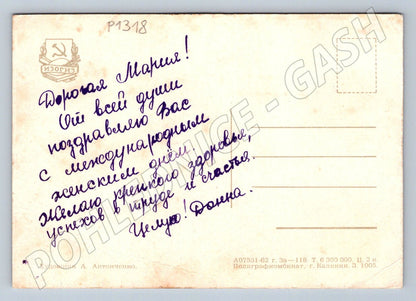 P1318
Дорогая Мария!
От всей души
поздравляю Вас
с международным
женским днём.
Желаю крепкого здоровья,
успехов в труде и счастья.
Целую! Донна.
POHLEDNICE - GASH
Художник А. Антонченко.
А07531-62 г. Зк—118 Т. 6 300 000. Ц. 3 к.
Полиграфкомбинат, г. Калинин. З. 1005.